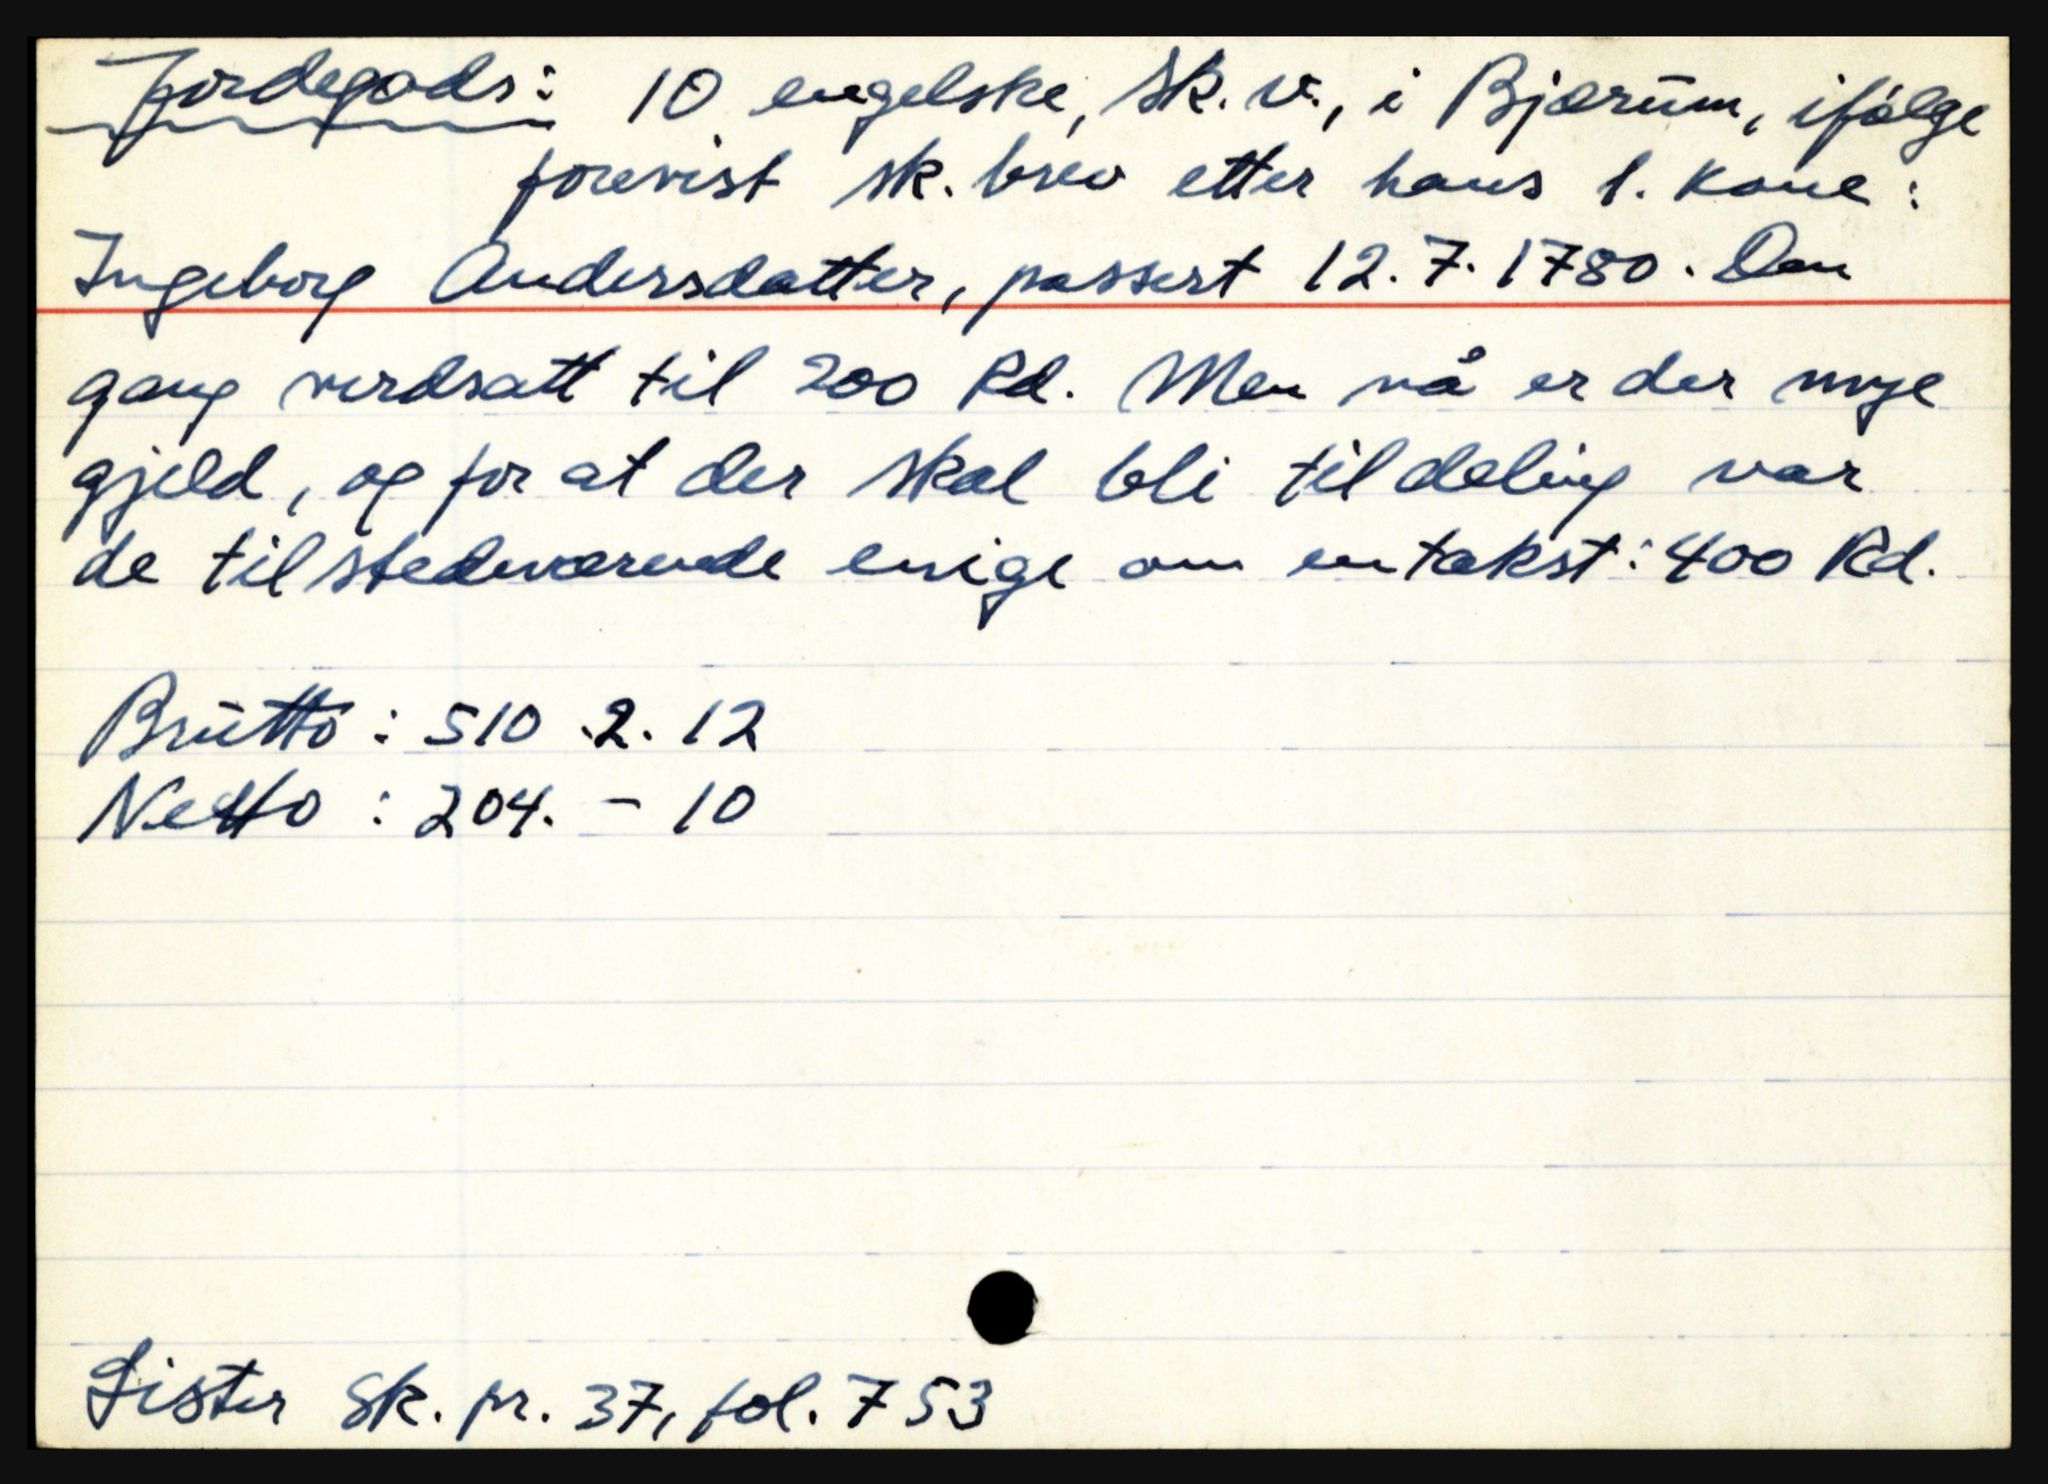 Jordegods: 10 engelske, sk. v., i Bjærum, ifølge
forevist sk. brev etter hans 1. kone:
Ingeborg Andersdatter, passert 12.7.1780. Den
gang verdsatt til 200 Rd. Men nå er der mye
gjeld, og for at der skal bli til deling var
de tilstedeværende enige om en takst: 400 Rd.
Brutto: 510.2.12
Netto: 204. - 10
Lister Sk. pr. 37, fol. 753